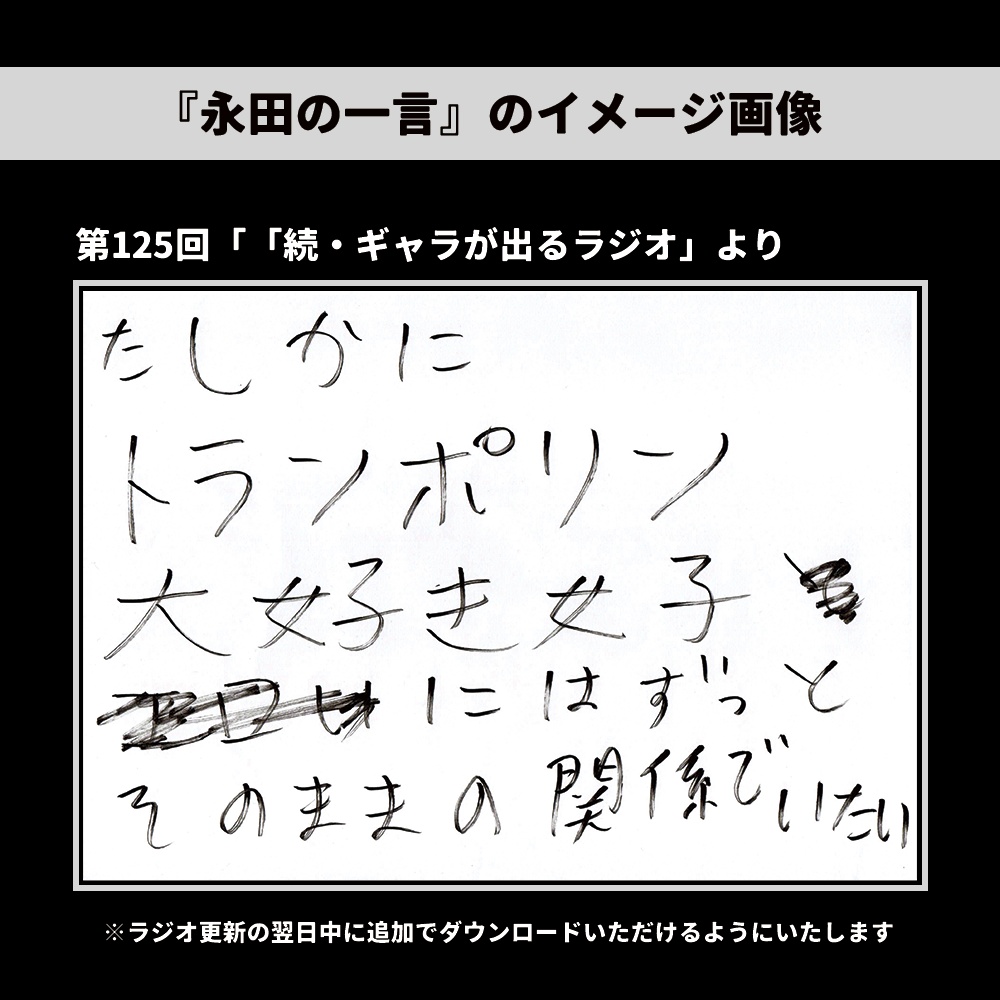 『永田の一言』のイメージ画像
第125回「「続・ギャラが出るラジオ」より
たしかに
トランポリン
大好き女子
にはずっと
そのままの関係でいたい
※ラジオ更新の翌日中に追加でダウンロードいただけるようにいたします